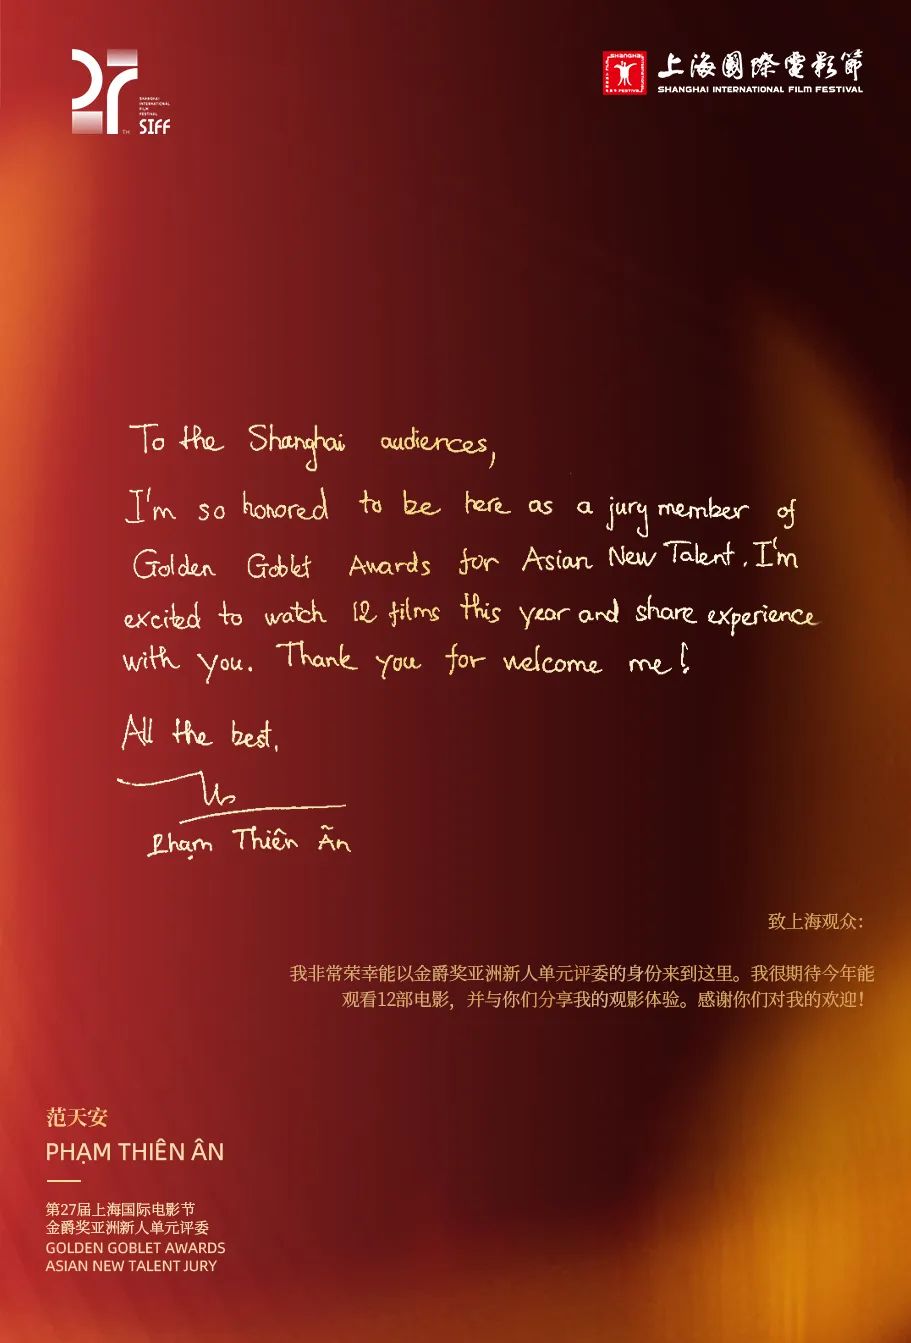 27
SHANGHAI
INTERNATIONAL
FILM
FESTIVAL
TM SIFF
上海國際電影節
SHANGHAI INTERNATIONAL FILM FESTIVAL
To the Shanghai audiences,
I'm so honored to be here as a jury member of
Golden Goblet Awards for Asian New Talent. I'm
excited to watch 12 films this year and share experience
with you. Thank you for welcome me!
All the best,
Phạm Thiên Ân
致上海观众：
我非常荣幸能以金爵奖亚洲新人单元评委的身份来到这里。我很期待今年能
观看12部电影，并与你们分享我的观影体验。感谢你们对我的欢迎！
范天安
PHẠM THIÊN ÂN
第27届上海国际电影节
金爵奖亚洲新人单元评委
GOLDEN GOBLET AWARDS
ASIAN NEW TALENT JURY